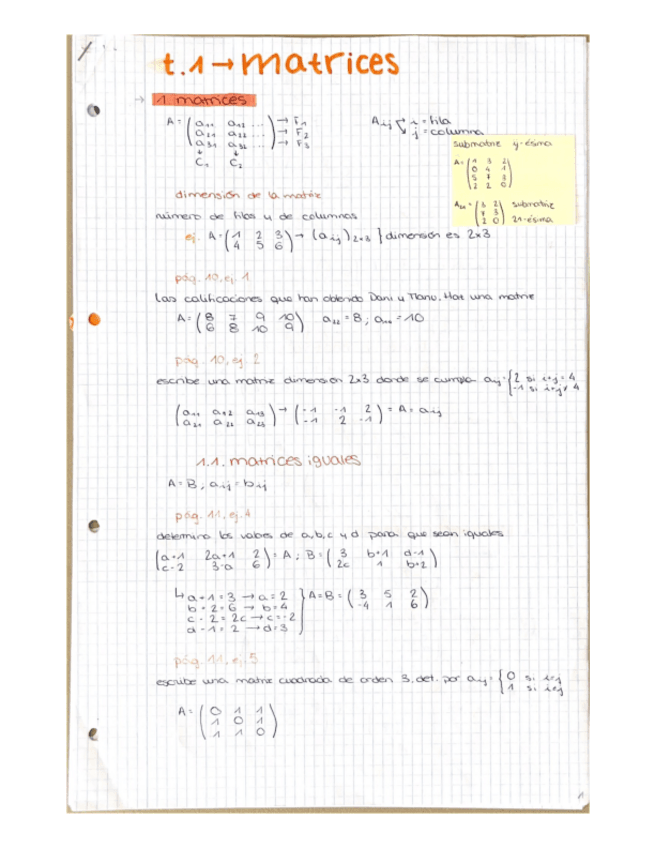 t.1 → matrices
1. matrices
A = ( a₁₁ a₁₂ ... ) → F₁
( a₂₁ a₂₂ ... ) → F₂
( a₃₁ a₃₂ ... ) → F₃
↓ ↓
C₁ C₂
Aij i = fila
j = columna
submatriz y-ésima
A = ( 1 3 2 )
( 0 4 1 )
( 5 7 3 )
( 2 2 0 )
A₂₁ = ( 3 2 ) submatriz
( 7 3 ) 21-ésima
( 2 0 )
dimensión de la matriz
número de filas y de columnas
ej. A = ( 1 2 3 ) → (aij)₂ₓ₃ } dimensión es 2x3
( 4 5 6 )
pág. 10, ej. 1
Las calificaciones que han obtenido Dani y . Haz una matriz
A = ( 8 7 9 10 ) a₁₁ = 8; = 10
( 6 8 10 9 )
pág. 10, ej. 2
escribe una matriz dimensión 2x3 donde se cumpla aij = { 2 si i+j = 4
-1 si i+j ≠ 4
( a₁₁ a₁₂ a₁₃ ) → ( -1 -1 2 ) = A = aij
( a₂₁ a₂₂ a₂₃ ) ( -1 2 -1 )
1.1. matrices iguales
A = B, aij = bij
pág. 11, ej. 4
determina los valores de a, b, c y d para que sean iguales
( a+1 2a+1 2 ) = A ; B = ( 3 b+1 d-1 )
( c-2 3-a 6 ) ( 2c 1 b+2 )
↳ a+1 = 3 → a = 2 } A = B = ( 3 5 2 )
b+2 = 6 → b = 4 ( -4 1 6 )
c-2 = 2c → c = -2
d-1 = 2 → d = 3
pág. 11, ej. 5
escribe una matriz cuadrada de orden 3, det. por aij = { 0 si i=j
1 si i≠j
A = ( 0 1 1 )
( 1 0 1 )
( 1 1 0 )
1